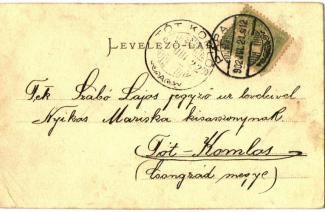 LEVELEZŐ-LAP
TÓT-KOMLÓS
PÁPA
902
Tek Szabó Lajos jegyző ur levelével
Nyikos Mariska kisasszonynak
Tót-Komlos
(Csongrád megye)